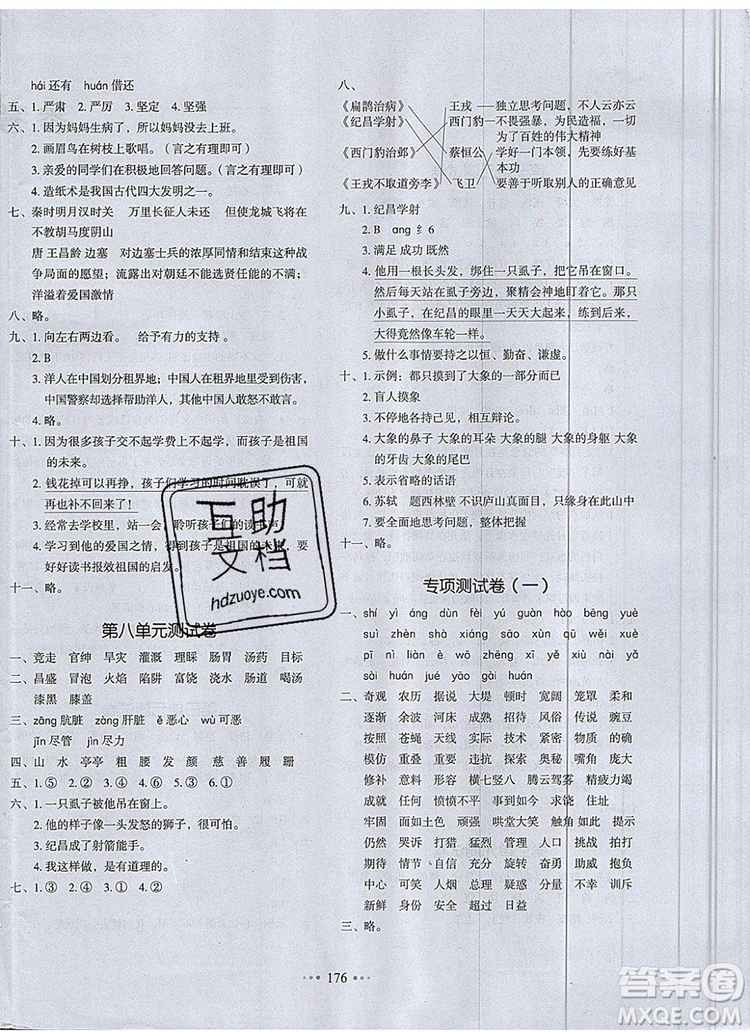 hái 还有 huán 借还
五、1. 严肃 2. 严厉 3. 坚定 4. 坚强
六、1. 因为妈妈生病了，所以妈妈没有去上班。
2. 画眉鸟在树枝上歌唱。（言之有理即可）
3. 亲爱的同学们在积极地回答问题。（言之有理即可）
4. 造纸术是我国古代四大发明之一。
七、秦时明月汉时关 万里长征人未还 但使龙城飞将在
不教胡马度阴山
唐 王昌龄 边塞 对边塞士兵的浓厚同情与结束这场战
争局面的愿望；流露出对朝廷不能选贤任能的不满；
洋溢着爱国激情
八、略。
九、1. 向左右两边看。 给予有力的支持。
2. B
3. 洋人在中国划分租界地；中国人在租界地受到欺负；
中国警察却选择帮助洋人，其他中国人敢怒不敢言。
4. 略。
十、1. 因为很多孩子交不起学费上不起学，而孩子是祖国
的未来。
2. 钱花掉可以再挣，孩子们学习的时间耽误了，可就
再也补不回来了！
3. 经常去学校里，站一会，聆听孩子们的读书声。
4. 学习到他的爱国之心，感受到孩子是祖国的未来，要
好好读书报效祖国的启发。
十一、略。
第八单元测试卷
一、竞走 官绅 旱灾 灌溉 理睬 肠胃 汤药 目标
二、昌盛 冒泡 火焰 陷阱 富饶 浇水 肠道 喝汤
漆黑 膝盖
三、zāng 肮脏 zàng 肝脏 ě 恶心 wù 可恶
jǐn 尽管 jìn 尽力
四、山 水 亭亭 粗 腰 发 颜 慈 善 履 跚
五、1. ⑤ 2. ④ 3. ④ 4. ②④ 5. ⑤ 6. ①
六、1. 一只虱子被他吊在窗上。
2. 他的样子像一头发怒的狮子，很凶。
3. 纪昌成了射箭能手。
4. 我这样做，是有道理的。
七、1. ③ 2. ② 3. ① 4. ④
八、
《扁鹊治病》 王戎 独立思考问题，不人云亦云
《纪昌学射》 西门豹 不畏强暴，为民造福，一切
为了百姓的伟大精神
《西门豹治邺》 蔡桓公 学好一门本领，先要练好基
本功
《王戎不取道旁李》 飞卫 要善于听取别人的正确意见
九、1. 纪昌学射
2. B ang 纟 6
3. 满足 成功 既然
4. 他用一根长头发，绑住一只虱子，把它吊在窗口。
然后每天站在虱子旁边，聚精会神地盯着它。那只
小虱子，在纪昌的眼里一天天大起来，练到后来，
大得竟然像车轮一样。
5. 做什么事情要持之以恒、勤奋、谦虚。
十、1. 示例：都只摸到了大象的一部分而已
2. 盲人摸象
3. 不停地各持己见，互相辩论。
4. 大象的鼻子 大象的耳朵 大象的腿 大象的身躯 大象
的牙齿 大象的尾巴
5. 表示省略的话语
6. 苏轼 题西林壁 不识庐山真面目，只缘身在此山中
7. 要全面地思考问题，整体把握
十一、略。
专项测试卷（一）
一、shí yì áng dùn fèi yú guān hào bēng yuè
suàn zhèn shū chuán xùn qū kuī wěi xuè
pī nì liàn è wān wèi zhēng xī è yān qǐ
sài huán juàn guó xuán jiá
二、奇观 农历 据说 大堤 顿时 宽阔 笼罩 柔和
逐渐 余波 河床 成熟 招引 新奇 俗语 豌豆
按照 苍蝇 蚊子 即使 科学 驾驶 敏锐 显示
模仿 重叠 要害 突击 大致 选择 嘴角 庞大
修补 人类 程序 横七竖八 腾云驾雾 精疲力竭
成就 逃避 愤愤不平 理直气壮 求饶 住址
牢固 面如土色 顽固 哄堂大笑 如此 提示
仍然 哭诉 打猎 猛烈 管理 人口 挑战 助攻
期待 情节 自信 充分 旋转 困境 呐喊 抱负
中心 可爱 人烟 总理 疑惑 分量 不幸 训斥
新鲜 身份 安全 超过 日益
三、略。
176
互助
文档
hdzuoye.com
答案圈
MXQE.COM